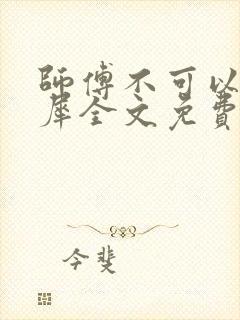 師傅不可以
犀全文免費
今斐